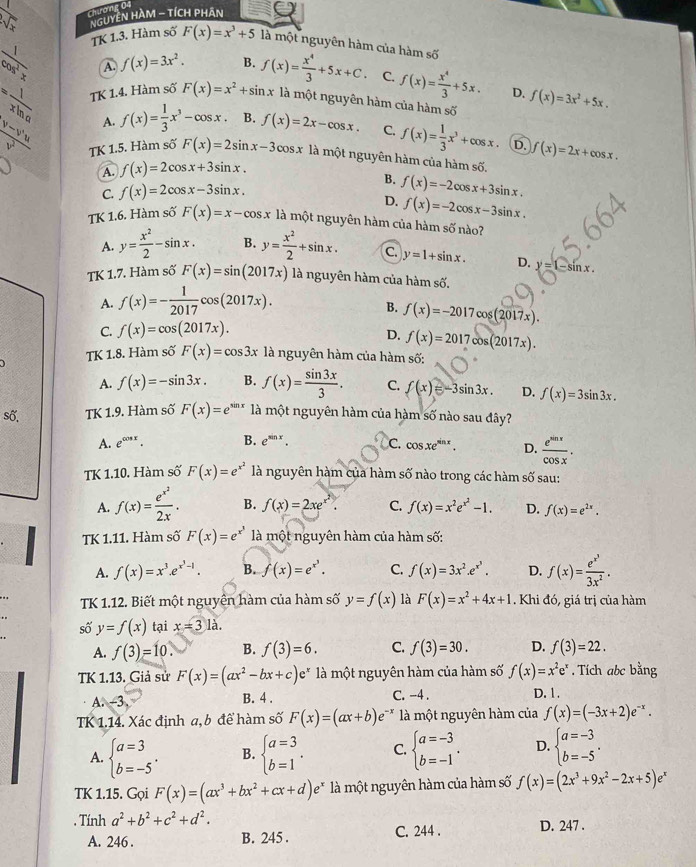 Chương 04
NGUYÊN HÀM – TÍCH PHÂN
TK 1.3. Hàm số F(x) = x³ + 5 là một nguyên hàm của hàm số
A. f(x) = 3x². B. f(x) = x⁴/3 + 5x + C. C. f(x) = x⁴/3 + 5x. D. f(x) = 3x² + 5x.
TK 1.4. Hàm số F(x) = x² + sin x là một nguyên hàm của hàm số
A. f(x) = 1/3 x³ − cos x. B. f(x) = 2x − cos x. C. f(x) = 1/3 x³ + cos x. D. f(x) = 2x + cos x.
TK 1.5. Hàm số F(x) = 2sin x − 3cos x là một nguyên hàm của hàm số.
A. f(x) = 2cos x + 3sin x. B. f(x) = −2cos x + 3sin x.
C. f(x) = 2cos x − 3sin x. D. f(x) = −2cos x − 3sin x.
TK 1.6. Hàm số F(x) = x − cos x là một nguyên hàm của hàm số nào?
A. y = x²/2 − sin x. B. y = x²/2 + sin x. C. y = 1 + sin x. D. y = 1 − sin x.
TK 1.7. Hàm số F(x) = sin(2017x) là nguyên hàm của hàm số.
A. f(x) = −1/2017 cos(2017x). B. f(x) = −2017cos(2017x).
C. f(x) = cos(2017x). D. f(x) = 2017cos(2017x).
TK 1.8. Hàm số F(x) = cos3x là nguyên hàm của hàm số:
A. f(x) = −sin3x. B. f(x) = sin3x/3. C. f(x) = −3sin3x. D. f(x) = 3sin3x.
số. TK 1.9. Hàm số F(x) = e^(sin x) là một nguyên hàm của hàm số nào sau đây?
A. e^(cos x). B. e^(sin x). C. cos xe^(sin x). D. e^(sin x)/cos x.
TK 1.10. Hàm số F(x) = e^(x²) là nguyên hàm của hàm số nào trong các hàm số sau:
A. f(x) = e^(x²)/2x. B. f(x) = 2xe^(x²). C. f(x) = x²e^(x²) − 1. D. f(x) = e^(2x).
TK 1.11. Hàm số F(x) = e^(x³) là một nguyên hàm của hàm số:
A. f(x) = x³.e^(x³−1). B. f(x) = e^(x³). C. f(x) = 3x².e^(x³). D. f(x) = e^(x³)/3x².
TK 1.12. Biết một nguyên hàm của hàm số y = f(x) là F(x) = x² + 4x + 1. Khi đó, giá trị của hàm
số y = f(x) tại x = 3 là.
A. f(3) = 10. B. f(3) = 6. C. f(3) = 30. D. f(3) = 22.
TK 1.13. Giả sử F(x) = (ax² − bx + c)e^x là một nguyên hàm của hàm số f(x) = x²e^x. Tích abc bằng
A. −3. B. 4. C. −4. D. 1.
TK 1.14. Xác định a, b để hàm số F(x) = (ax + b)e^(−x) là một nguyên hàm của f(x) = (−3x + 2)e^(−x).
A. {a = 3, b = −5. B. {a = 3, b = 1. C. {a = −3, b = −1. D. {a = −3, b = −5.
TK 1.15. Gọi F(x) = (ax³ + bx² + cx + d)e^x là một nguyên hàm của hàm số f(x) = (2x³ + 9x² − 2x + 5)e^x
. Tính a² + b² + c² + d².
A. 246. B. 245. C. 244. D. 247.